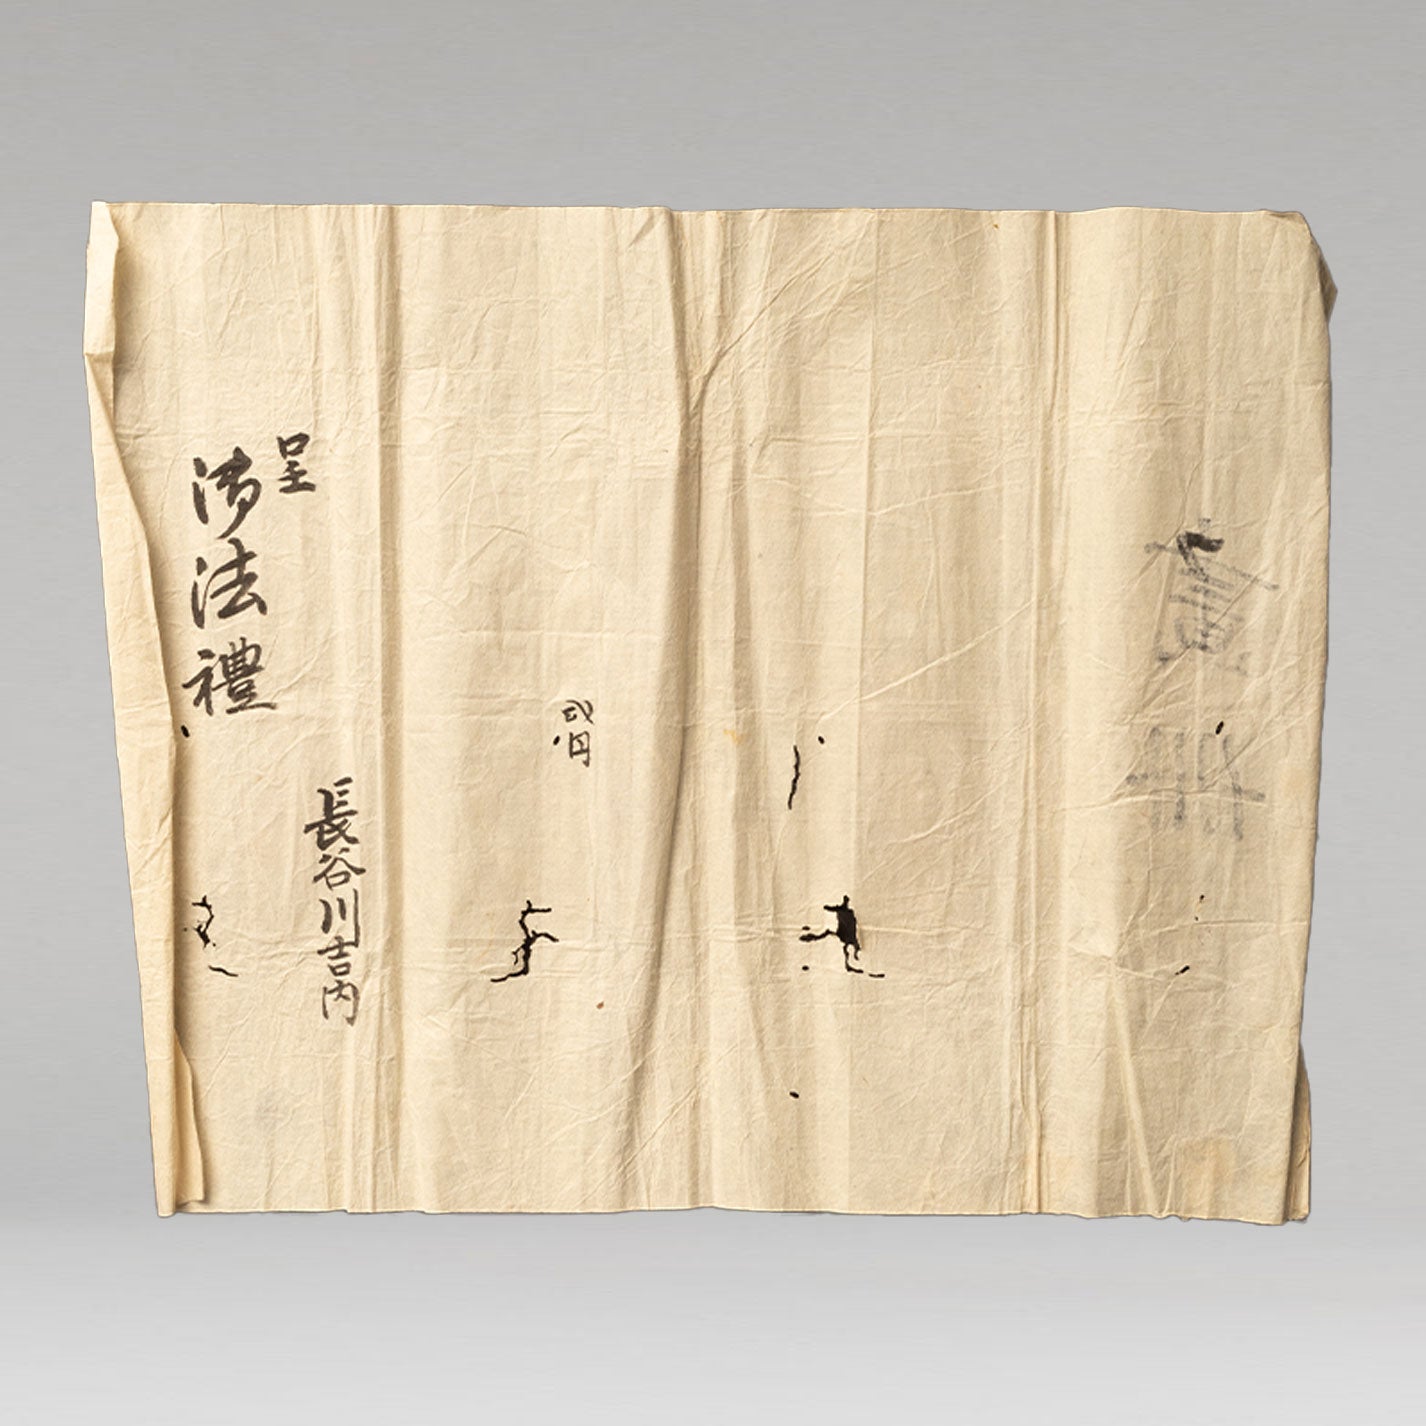 弐円
長谷川吉内
呈
御法禮